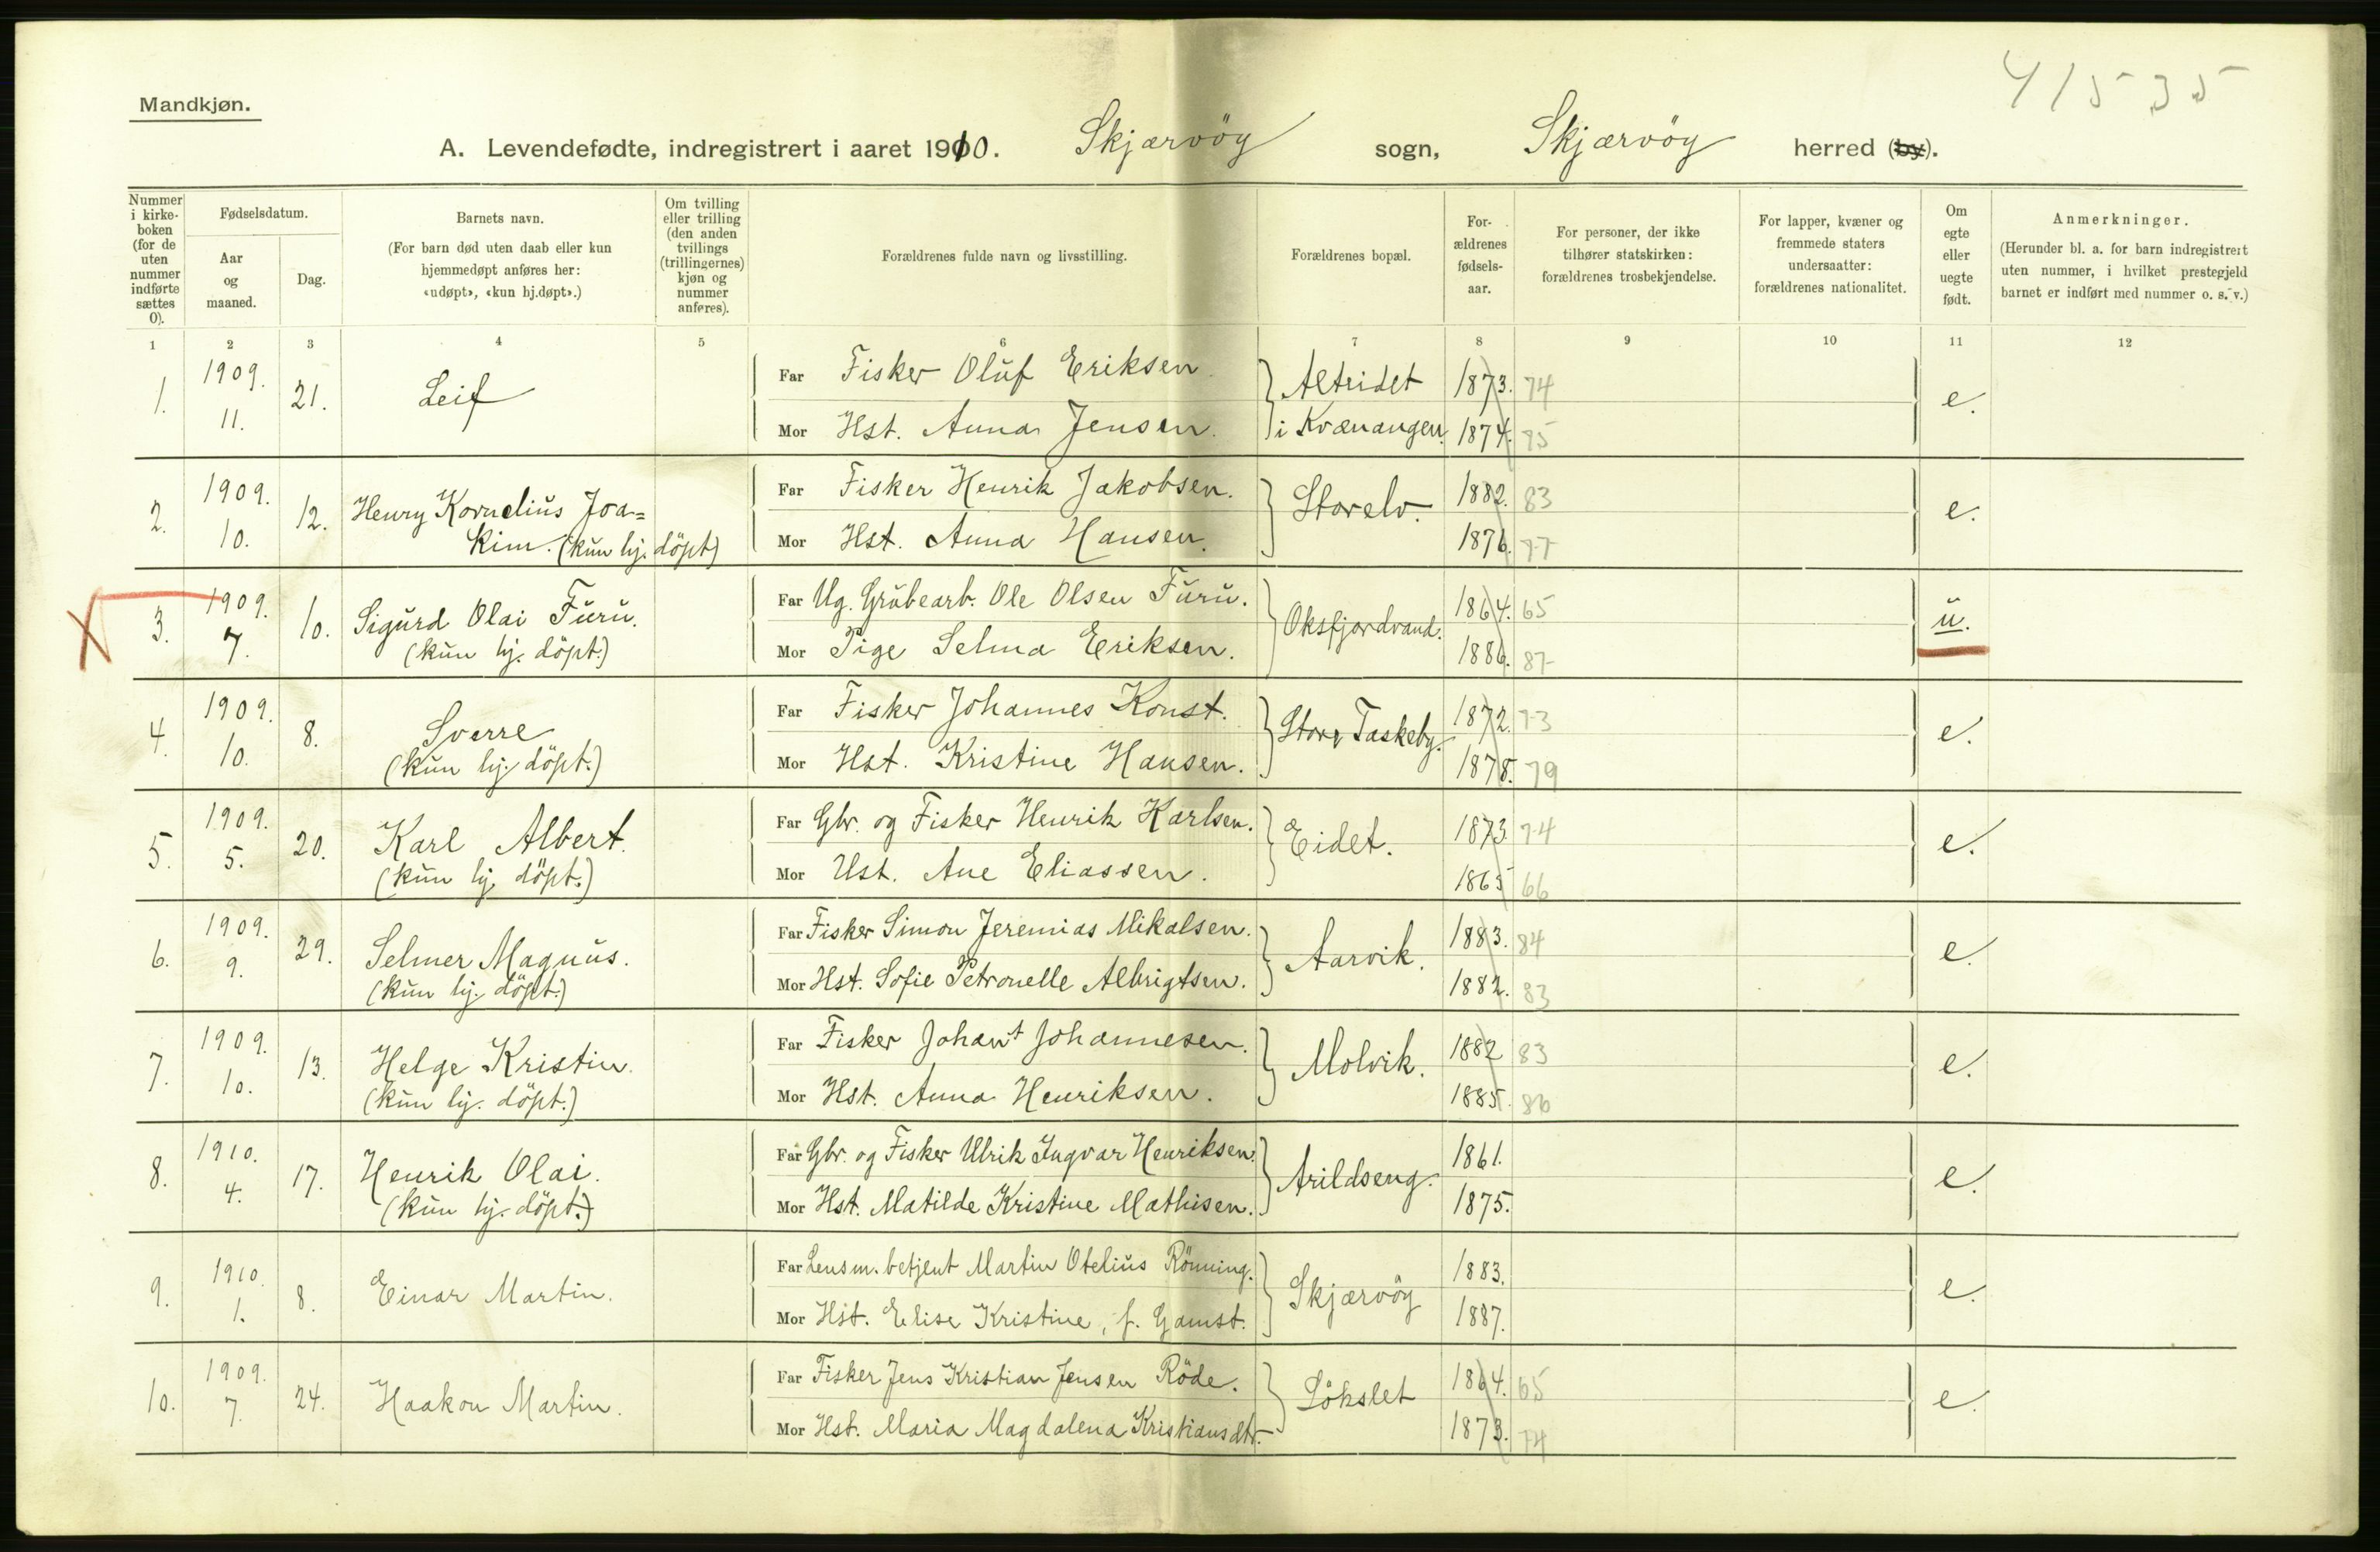 41535
Mandkjøn.
A. Levendefødte, indregistrert i aaret 1910. Skjærvöy sogn, Skjærvöy herred (by).
Nummer i kirke-boken (for de uten nummer indførte sættes 0).
Fødselsdatum.
Aar og maaned.
Dag.
Barnets navn.
(For barn død uten daab eller kun hjemmedøpt anføres her: «udøpt», «kun hj.døpt».)
Om tvilling eller trilling (den anden tvillings (trillingernes) kjøn og nummer anføres).
Forældrenes fulde navn og livsstilling.
Forældrenes bopæl.
For-ældrenes fødsels-aar.
For personer, der ikke tilhører statskirken: forældrenes trosbekjendelse.
For lapper, kvæner og fremmede staters undersaatter: forældrenes nationalitet.
Om egte eller uegte født.
Anmerkninger.
(Herunder bl. a. for barn indregistrert uten nummer, i hvilket prestegjeld barnet er indført med nummer o. s. v.)
1 2 3 4 5 6 7 8 9 10 11 12
1. 1909. 11. 21. Leif
Far Fisker Oluf Eriksen. Alteidet 1873. 74
Mor Hst. Anna Jensen. i Kvænangen. 1874. 75 e.
2. 1909. 10. 12. Henry Kornelius Joa=
kim. (kun hj. döpt)
Far Fisker Henrik Jakobsen. Storelv. 1882. 83
Mor Hst. Anna Hansen. 1876. 77 e.
3. 1909. 7. 10. Sigurd Olai Furu.
(kun hj. döpt.)
Far Ug. Grubearb. Ole Olsen Furu. Oksfjordvand. 1864. 65
Mor Pige Selma Eriksen. 1886. 87 u.
4. 1909. 10. 8. Sverre
(kun hj. döpt.)
Far Fisker Johannes Konst. Store Taskeby. 1872. 73
Mor Hst. Kristine Hansen. 1878. 79 e.
5. 1909. 5. 20. Karl Albert.
(kun hj. döpt.)
Far Gbr. og Fisker Henrik Karlsen. Eidet. 1873 74
Mor Hst. Ane Eliassen. 1865 66 e.
6. 1909. 9. 29. Selmer Magnus.
(kun hj. döpt.)
Far Fisker Simon Jeremias Mikalsen. Aarvik. 1883. 84
Mor Hst. Sofie Petronelle Albrigtsen. 1882. 83 e.
7. 1909. 10. 13. Helge Kristin.
(kun hj. döpt.)
Far Fisker Johan Johannesen. Molvik. 1882 83
Mor Hst. Anna Henriksen. 1885. 86 e.
8. 1910. 4. 17. Henrik Olai.
(kun hj. döpt.)
Far Gbr. og Fisker Ulrik Ingvar Henriksen. Arildseng. 1861.
Mor Hst. Matilde Kristine Mathisen. 1875. e.
9. 1910. 1. 8. Einar Martin.
Far Lensm. betjent Martin Otelius Rönning. Skjærvöy 1883.
Mor Hst. Elise Kristine, f. Gamst. 1887. e.
10. 1909. 7. 24. Haakon Martin.
Far Fisker Jens Kristian Jensen Röde. Lökslet 1864. 65
Mor Hst. Maria Magdalena Kristiansdtr. 1873. 74 e.